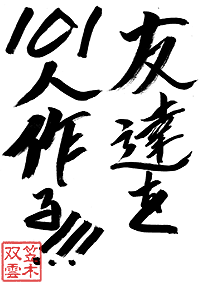 友達を
101人作る!!!
笠木
双雲